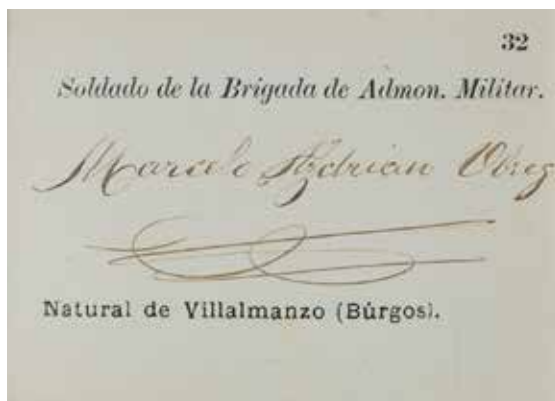 32
Soldado de la Brigada de Admon. Militar.
Marcelo Adrian Obreg
Natural de Villalmanzo (Búrgos).